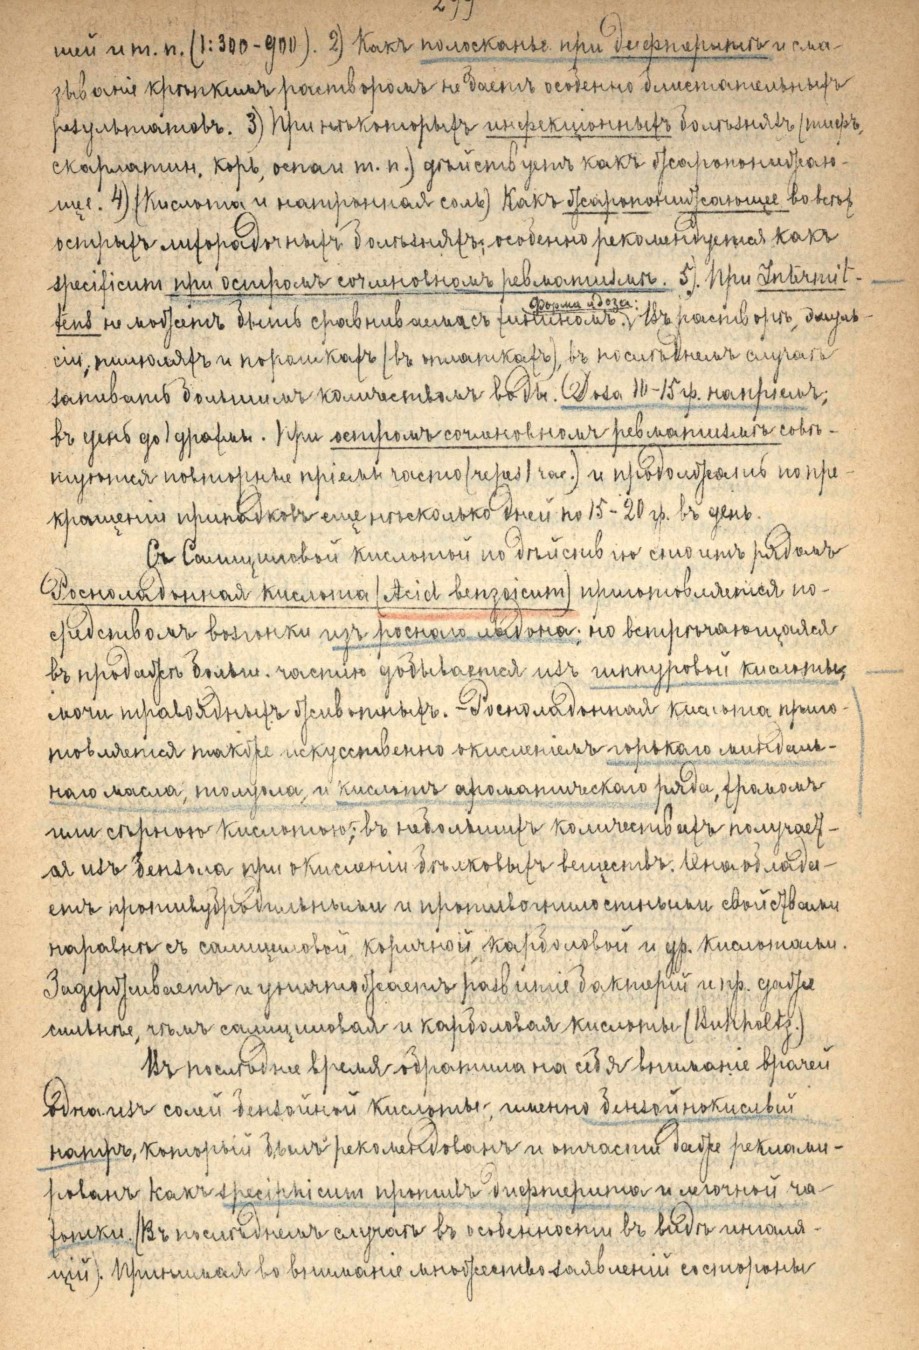 шей и т. п. (1:300-900). 2) Какъ полосканье при дифтеритѣ и сма-
зываніе крѣпкимъ растворомъ не даетъ особенно блистательныхъ
результатовъ. 3) При нѣкоторыхъ инфекціонныхъ болѣзняхъ (тифъ,
скарлатин, корь, оспа и т. п.) дѣйствуетъ какъ жаропонижаю-
щее. 4) (Кислота и натронная соль) Какъ жаропонижающее во всѣхъ
острыхъ лихорадочныхъ болѣзняхъ; особенно рекомендуется какъ
specificum при остромъ сочленовномъ ревматизмѣ. 5). При Intermit-
tens не можетъ быть сравниваема съ хининомъ.
Форма и доза:
Въ растворѣ, эмуль-
сіи, пилюляхъ и порошкахъ (въ облаткахъ), въ послѣднемъ случаѣ
запивать большимъ количествомъ воды. Doza 10-15 гр. на пріемъ;
въ день до 1 драхмы. При остромъ сочленовномъ ревматизмѣ совѣ-
туются повторные пріемы часто (черезъ 1 час.) и продолжать по пре-
кращеніи припадковъ еще нѣсколько дней по 15-20 гр. въ день.
Съ Салициловой кислотой по дѣйствію стоитъ рядомъ
Росноладонная кислота (Acid benzoicum) приготовляется по-
средствомъ возгонки изъ роснаго ладона; но встрѣчающаяся
въ продажѣ больш. частію добывается изъ гиппуровой кислоты;
мочи травоядныхъ животныхъ. - Росноладонная кислота приго-
товляется также искусственно окисленіемъ горькаго миндаль-
наго масла, толуола, и кислотъ ароматическаго ряда, хромомъ
или сѣрною кислотою; въ небольшихъ количествахъ получает-
ся изъ бензола при окисленіи бѣлковыхъ веществъ. Она облада-
етъ противубродильными и противогнилостными свойствами
наравнѣ съ салициловой, коричной, карболовой и др. кислотами.
Задерживаетъ и уничтожаетъ развитіе бактерій и пр. даже
сильнѣе, чѣмъ салициловая и карболовая кислоты (Buhholtz.)
Въ послѣднее время обратила на себя вниманіе врачей
одна изъ солей бензойной кислоты, именно бензойнокислый
натръ, который былъ рекомендованъ и отчасти даже реклами-
рованъ какъ speciphicum противъ дифтерита и легочной ча-
хотки. (Въ послѣднемъ случаѣ въ особенности въ видѣ ингаля-
цій). Принимая во вниманіе множество заявленій со стороны